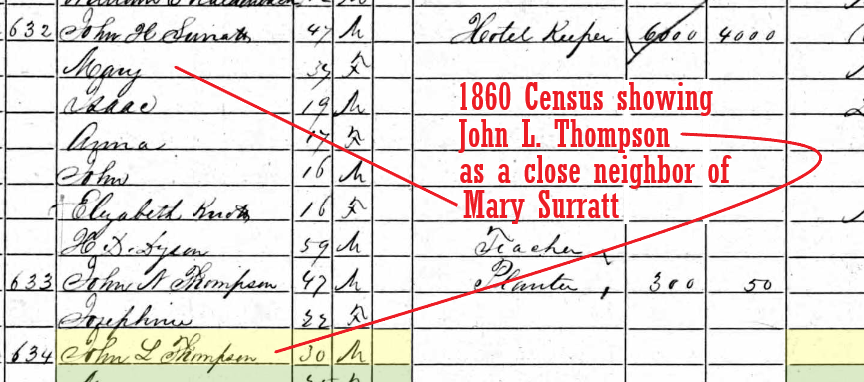 632 John H Surratt 47 M Hotel Keeper 6000 4000
Mary 37 F
Isaac 19 M
Anna 17 F
John 16 M
Elizabeth Knott 16 F
H. D. Dyson 59 M Teacher
633 John N Thompson 47 M Planter 300 50
Josephine 22 F
634 John L Thompson 30 M
1860 Census showing
John L. Thompson
as a close neighbor of
Mary Surratt